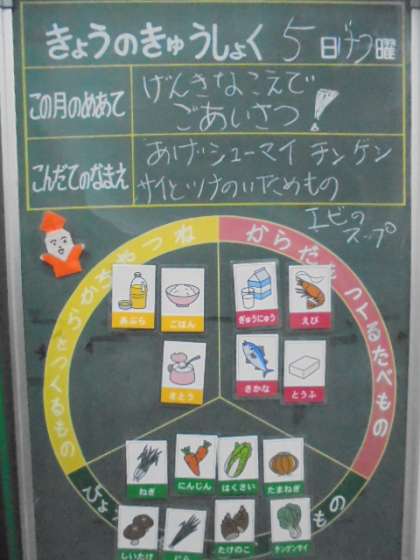 きょうのきゅうしょく 5日げつ曜
この月のめあて
げんきなこえで
ごあいさつ!
こんだてのなまえ
あげシューマイ チンゲン
サイとツナのいためもの
エビの
スープ
ねつやちからをつくるもの
からだをつくるたべもの
あぶら
ごはん
ぎゅうにゅう
えび
さとう
さかな
とうふ
ねぎ
にんじん
はくさい
たまねぎ
しいたけ
にら
たけのこ
チンゲンサイ
もの